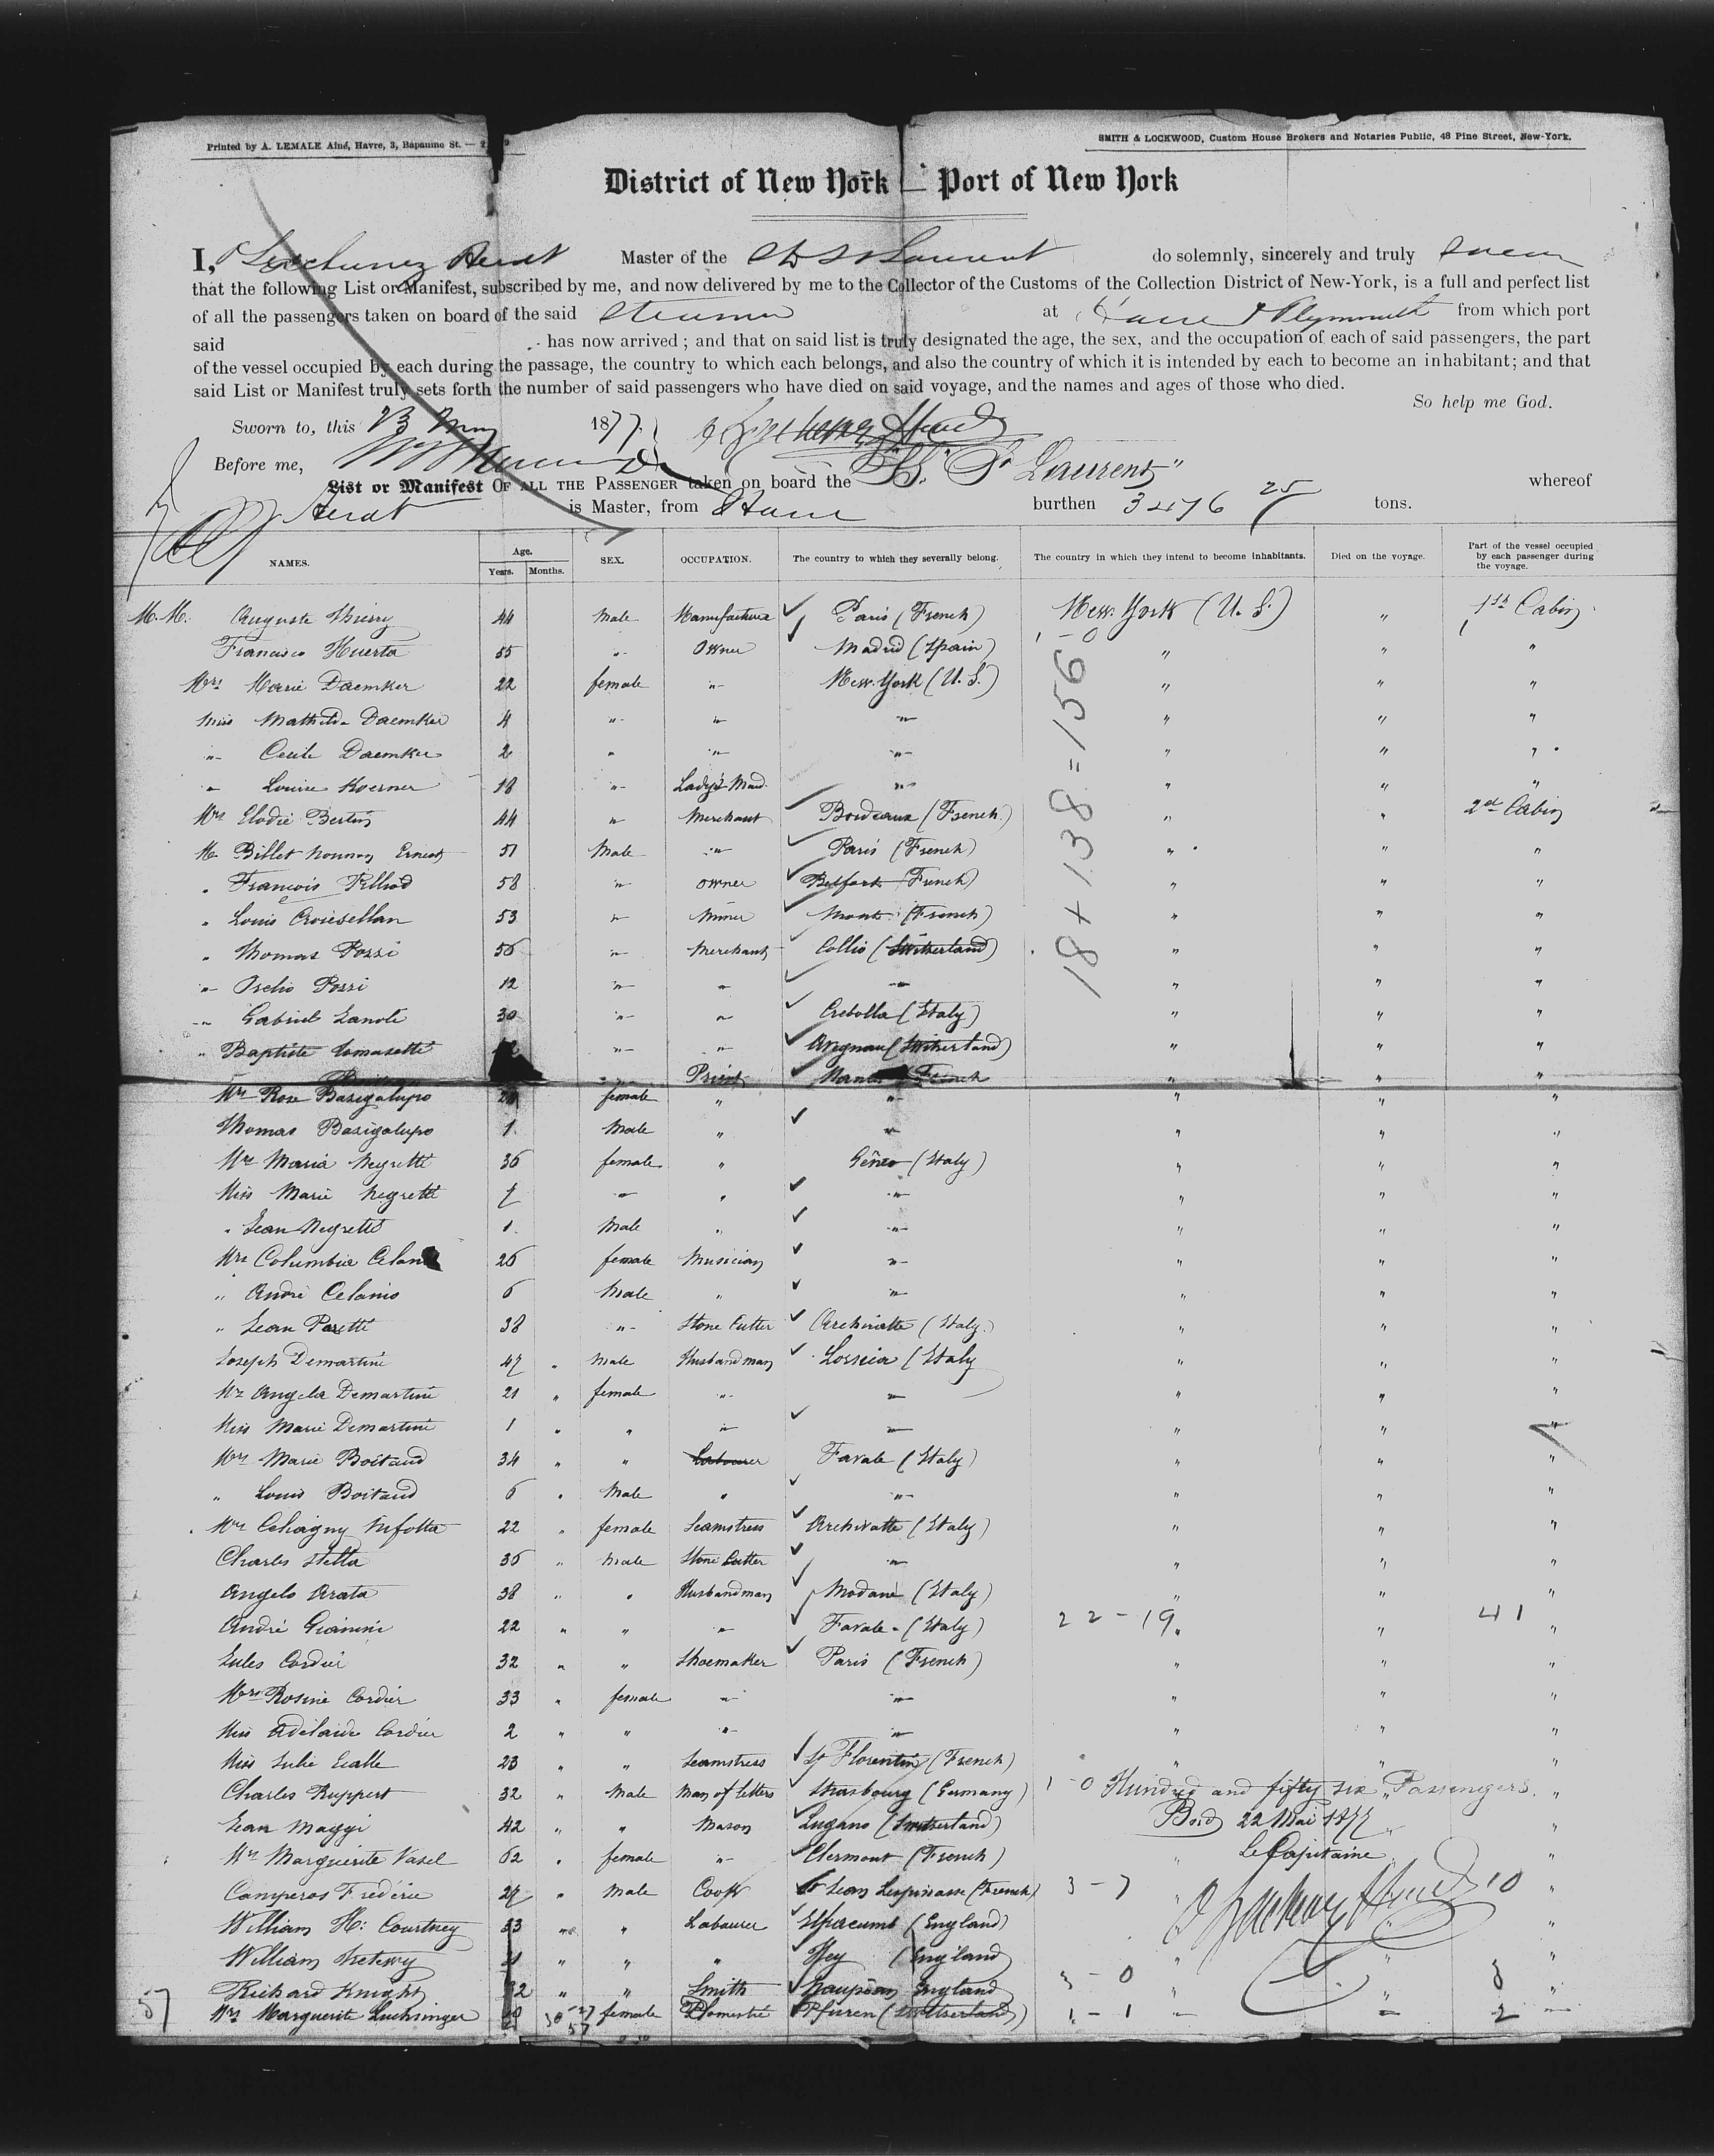 Printed by A. LEMALE Ainé, Havre, 3, Bapaume St. —
SMITH & LOCKWOOD, Custom House Brokers and Notaries Public, 48 Pine Street, New-York.
District of New York — Port of New York
I, Master of the St Laurent do solemnly, sincerely and truly swear
that the following List or Manifest, subscribed by me, and now delivered by me to the Collector of the Customs of the Collection District of New-York, is a full and perfect list
of all the passengers taken on board of the said Steamer at Havre & Plymouth from which port
said has now arrived ; and that on said list is truly designated the age, the sex, and the occupation of each of said passengers, the part
of the vessel occupied by each during the passage, the country to which each belongs, and also the country of which it is intended by each to become an inhabitant; and that
said List or Manifest truly sets forth the number of said passengers who have died on said voyage, and the names and ages of those who died.
So help me God.
Sworn to, this 23 May 1877
Before me,
List or Manifest OF ALL THE PASSENGER taken on board the St Laurent" whereof
is Master, from Havre burthen 3476 25 tons.
NAMES. Age. Years. Months. SEX. OCCUPATION. The country to which they severally belong. The country in which they intend to become inhabitants. Died on the voyage. Part of the vessel occupied by each passenger during the voyage.
M.M. Auguste Thierry 44 Male Manufacturer Paris (French) New York (U. S.) " 1st Cabin
Francisco Huerta 55 " Owner Madrid (Spain) " " "
Mrs Marie Daemker 22 female " New York (U. S.) " " "
Miss Mathilde Daemker 4 " " " " " "
" Cecile Daemker 2 " " " " " "
" Louise Koerner 18 " Lady's Maid " " " "
Mrs Elodie Bertin 44 " Merchant Bordeaux (French) " " 2d Cabin
M. Billet Ernest 51 Male " Paris (French) " " "
" François 58 " Owner Belfort (French) " " "
" Louis 53 " Miner (French) " " "
" Thomas Pozzi 56 " Merchant Collio (Switzerland) " " "
" Pozzi 12 " " " " " "
" Gabriel Zanoli 30 " " (Italy) " " "
" Baptiste Tomasetti " " (Switzerland) " " "
Priest French " " "
Mrs Rose Bazigalupo female " " " " "
Thomas Bazigalupo 1 Male " " " " "
Mrs Maria Negretti 36 female " Gênes (Italy) " " "
Miss Marie Negretti 7 " " " " " "
" Jean Negretti 1 Male " " " " "
Mrs Columbia 26 female Musician " " " "
" André Celanio 6 Male " " " " "
" Jean 38 " Stone Cutter (Italy) " " "
Joseph Demartini 47 " Male Husbandman (Italy " " "
Mrs Angela Demartini 21 " female " " " " "
Miss Marie Demartini 1 " " " " " " "
Mrs Marie Boitaud 34 " " Labourer Favale (Italy) " " "
" Louis Boitaud 6 " Male " " " " "
Mrs 22 " female Seamstress (Italy) " " "
Charles Stella 36 " Male Stone Cutter " " " "
Angelo Arata 38 " " Husbandman Modane (Italy) " " "
André Gianini 22 " " " Favale (Italy) 22 - 19 " 41
Jules Cordier 32 " " Shoemaker Paris (French) " " "
Mrs Rosine Cordier 33 " female " " " " "
Miss Adelaide Cordier 2 " " " " " " "
Miss Julie 23 " " Seamstress St Florentin (French) " " "
Charles Ruppert 32 " Male Man of letters Strasbourg (Germany) 1 - 0 Hundred and fifty six Passengers. "
Jean Maggi 42 " " Mason Lugano (Switzerland) Bord 22 Mai 1877 "
Mrs Marguerite Vasel 62 " female " Clermont (French) Le Capitaine "
Camperos Frederic 27 " Male Cook St Jean (French) 3 - 7 10 "
William H: Courtney 33 " " Labourer (England) "
William " " " (England) " " "
Richard Knight 32 " " Smith England 3 - 0 " 3
Mrs Marguerite Luchsinger female (Switzerland) 1 - 1 " 2
18 + 138 = 156
57